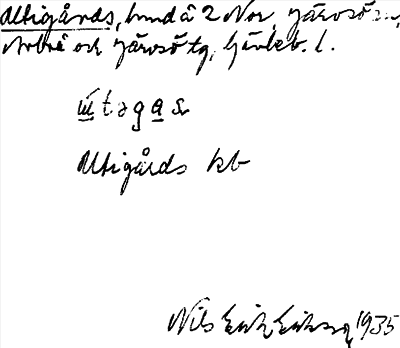 Utigårds, hmd å 2 Nor, Järvsö sn,
Arbrå och Järvsö tg, Gävleb. l.
ú̱tәga̱ṣ
Utigårds kb
Nils Erik Eriksson 1935